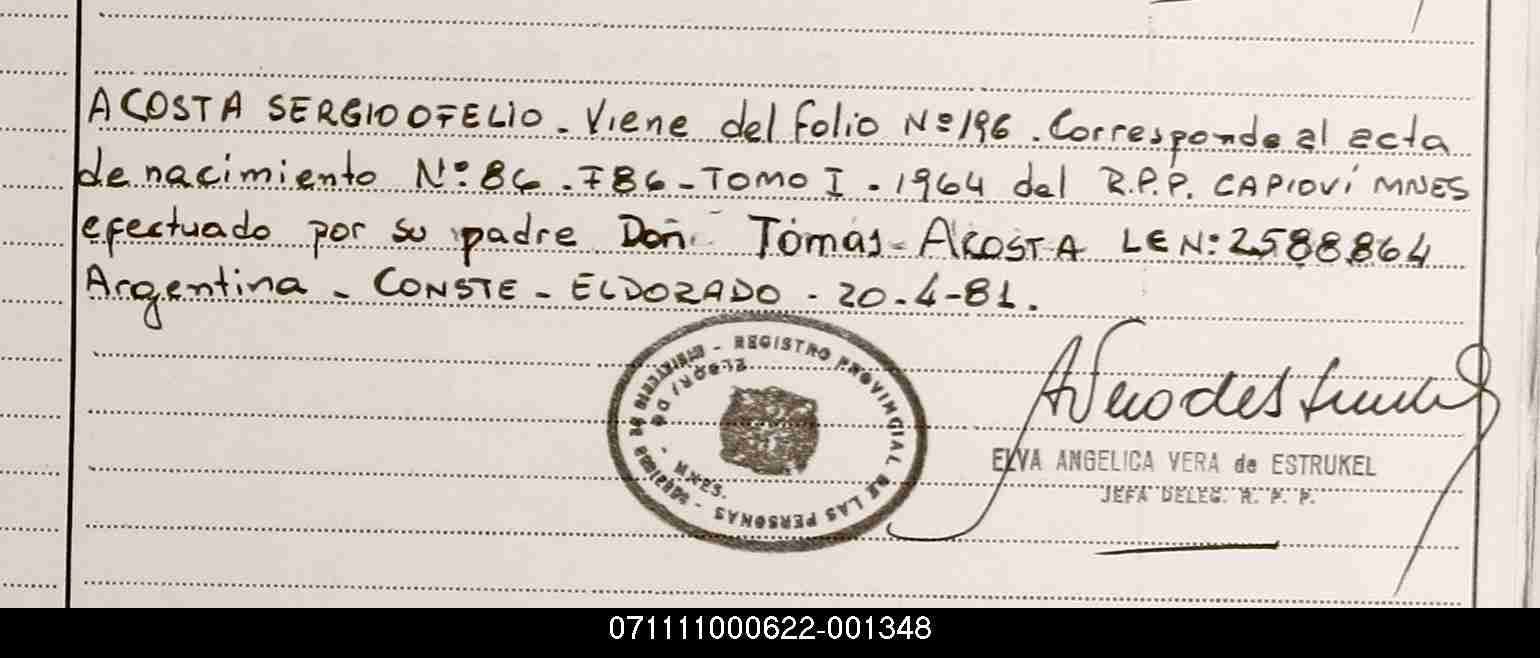 ACOSTA SERGIO OFELIO. Viene del folio Nº 196. Corresponde al acta
de nacimiento Nº: 86. F86 - TOMO I. 1964 del R.P.P. CAPIOVÍ MNES
efectuado por su padre Don Tomás Acosta LE Nº: 2588864
Argentina - CONSTE - ELDORADO - 20-4-81.
REGISTRO PROVINCIAL DE LAS PERSONAS
MNES.
ELVA ANGELICA VERA de ESTRUKEL
JEFA DELEG. R. P. P.
071111000622-001348